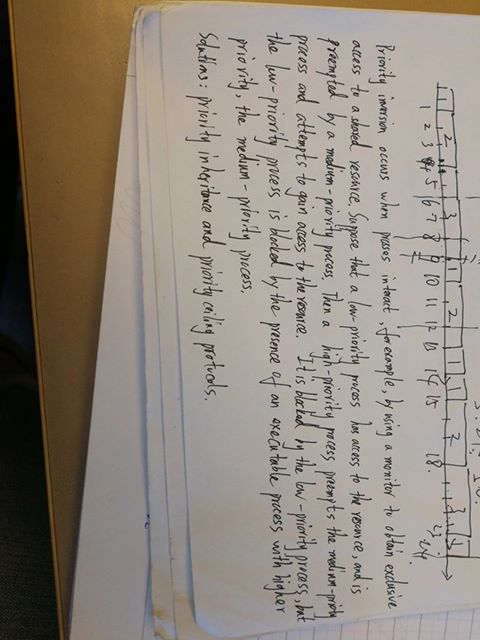 1 2 3 1 2 1 3 2 3
1 2 3 4 5 6 7 8 9 10 11 12 13 14 15 18. 24
Priority inversion occurs when prosses interact, for example, by using a monitor to obtain exclusive
access to a shared resource. Suppose that a low-priority process has access to the resource, and is
preempted by a medium-priority process. Then a high-priority process preempts the medium-priority
process and attempts to gain access to the resource. It is blocked by the low-priority process, but
the low-priority process is blocked by the presence of an executable process with higher
priority, the medium-priority process.
Solutions: priority inheritance and priority ceiling protocols.